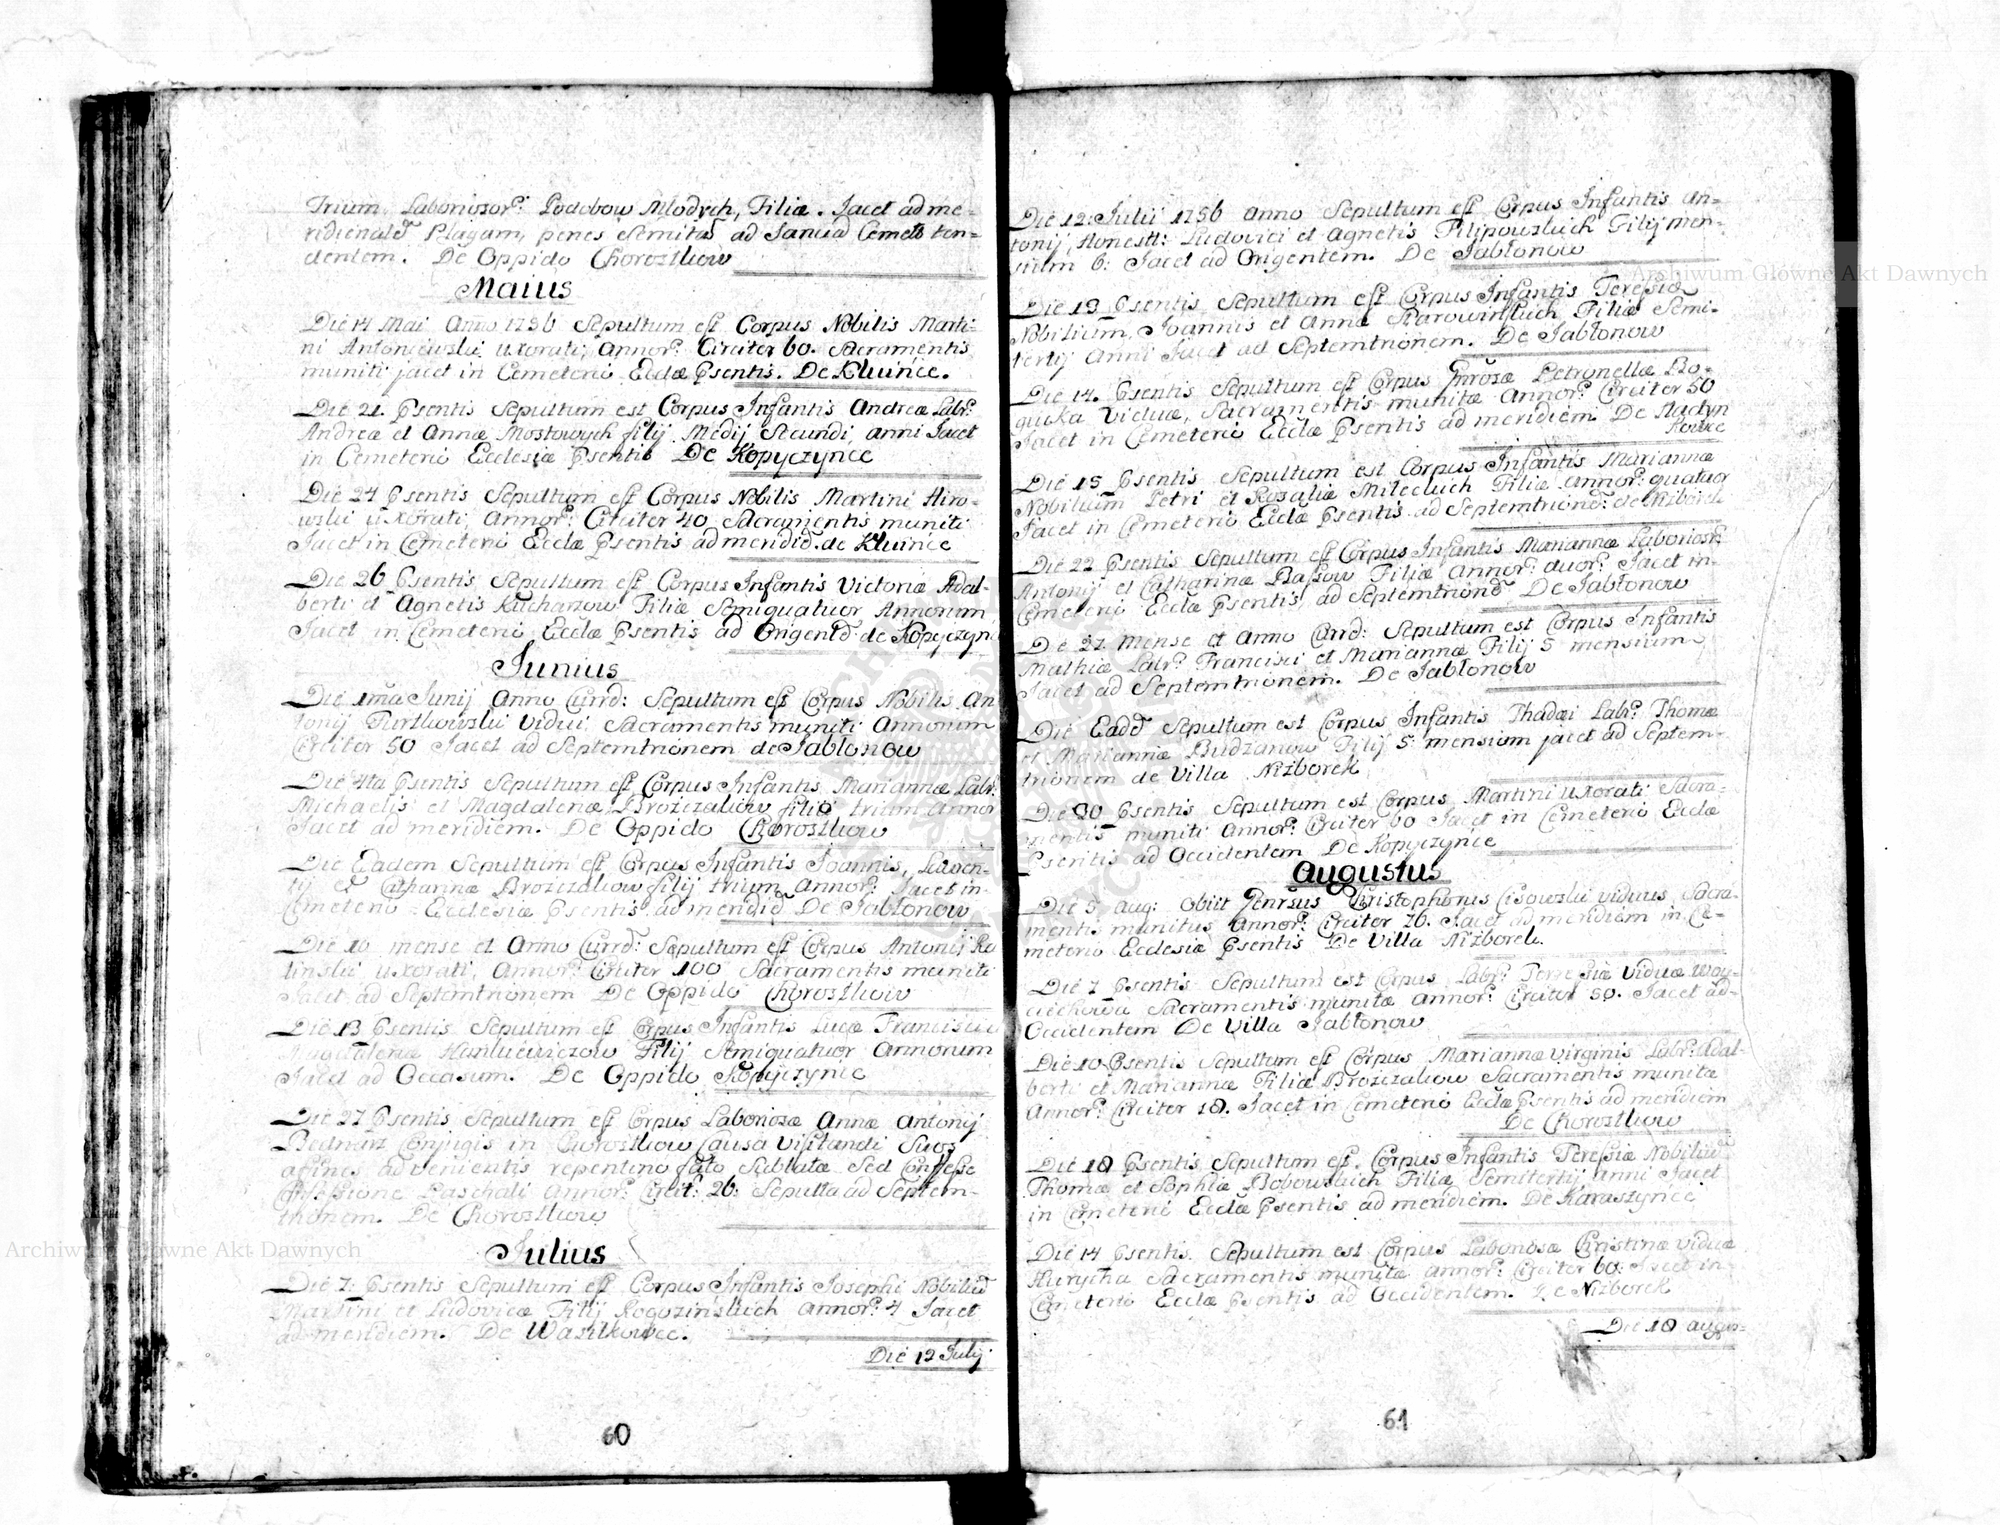 Trium. Laboriosor: Podobow Mlodych, Filiæ. Jacet ad me=
ridienale Plagam, penes Semitas ad Januã Cemete ten=
dentem. De Oppido Chorostkow
Maius
Die 14 Mai Anno 1756 Sepultum est Corpus Nobilis Marti=
ni Antoniewski uxorati, Annor: Circiter 60. Sacramentis
muniti jacet in Cemeterio Ecclæ Psentis. De Kluince.
Die 21. Psentis Sepultum est Corpus Infantis Andreæ Labr:
Andreæ et Annæ Mostowych filij Medij Secundi anni Jacet
in Cemeterio Ecclesiæ Psentis De Kopyczynce
Die 24 Psentis Sepultum est Corpus Nobilis Martini Hiro=
wski uxorati, Annor: Circiter 40 Sacramentis muniti
Jacet in Cemeterio Ecclæ Psentis ad merid. de Kluince
Die 26 Psentis Sepultum est Corpus Infantis Victoriæ Adal=
berti et Agnetis Kucharzow Filiæ Semiquatuor Annorum
Jacet in Cemeterio Ecclæ Psentis ad Origent de Kopyczyn
Junius
Die 1ma Junij Anno Currd: Sepultum est Corpus Nobilis An
tonij Turzkowski Vidui Sacramentis muniti Annorum
Circiter 50 Jacet ad Septemtrionem de Jabłonow
Die 4ta Psentis Sepultum est Corpus Infantis Mariannæ Labr:
Michaelis et Magdalenæ Brozczakow filiæ trium Annor
Jacet ad meridiem. De Oppido Chorostkow
Die Eadem Sepultum est Corpus Infantis Joannis, Lauren=
tij et Catharinæ Brozczakow filij trium Annor: Jacet in
Cemeterio Ecclesiæ Psentis ad merid De Jabłonow
Die 10 mense et Anno Currd: Sepultum est Corpus Antonij Ko
linski uxorati, Annor: Circiter 100 Sacramentis muniti
Jacet ad Septemtrionem De Oppido Chorostkow
Die 13 Psentis Sepultum est Corpus Infantis Lucæ Francisci
Magdalenæ Hunkiewiczow Filij Semiquatuor Annorum
Jacet ad Occasum. De Oppido Kopyczynce
Die 27 Psentis Sepultum est Corpus Laboriosæ Annæ Antonij
Bednarz Conjugis in Chorostkow Causa Visitandi Suos
afines advenientis repentino fato Sublatæ Sed Confessæ
Confessione Paschali Annor: Circit: 26: Sepulta ad Septem=
trionem. De Chorostkow
Julius
Die 7: Psentis Sepultum est Corpus Infantis Josephi Nobiliu
Martini et Ludovicæ Filij Rogozinskich Annor: 4 Jacet
ad meridiem. De Wasilkowce.
Die 12 Julij
60
Die 12: Julii 1756 Anno Sepultum est Corpus Infantis An=
tonij, Honest: Ludovici et Agnetis Filipowskich Filij men=
sium 6: Jacet ad Origentem. De Jabłonow
Die 13 Psentis Sepultum est Corpus Infantis Teresiæ
Nobilium, Joannis et Annæ Starowinskich Filiæ Semi=
tertij Anni Jacet ad Septemtrionem. De Jabłonow
Die 14. Psentis Sepultum est Corpus Gnrosæ Petronellæ Ro=
gucka Viduæ, Sacramentis munitæ Annor: Circiter 50
Jacet in Cemeterio Ecclæ Psentis ad meridiem De Hadyn
kowce
Die 15 Psentis Sepultum est Corpus Infantis Mariannæ
Nobilium Petri et Rosaliæ Mileckich Filiæ Annor: quatuor
Jacet in Cemeterio Ecclæ Psentis ad Septemtrion: de Niżborek
Die 22 Psentis Sepultum est Corpus Infantis Mariannæ Laborios:
Antonij et Catharinæ Bassow Filiæ Annor: duor: Jacet in
Cemeterio Ecclæ Psentis, ad Septemtrion De Jabłonow
Die 27 Mense et Anno Currd: Sepultum est Corpus Infantis
Mathiæ Labr: Francisci et Mariannæ Filij 5 mensium
Jacet ad Septemtrionem. De Jabłonow
Die Ead Sepultum est Corpus Infantis Thadæi Labr: Thomæ
et Mariannæ Budzanow Filij 5 mensium jacet ad Septem=
trionem de Villa Niżborek
Die 30 Psentis Sepultum est Corpus Martini uxorati Sacra=
mentis muniti Annor: Circiter 60 Jacet in Cemeterio Ecclæ
Psentis ad Occidentem De Kopyczynce
Augustus
Die 5 Aug: Obiit Gnrsus Christophorus Cisowski viduus, Sacra=
mentis munitus Annor: Circiter 70. Jacet ad meridiem in Ce=
meterio Ecclesiæ Psentis De Villa Niżborek.
Die 7 Psentis Sepultum est Corpus Labr: Terresiæ Viduæ Woy=
ciechowa Sacramentis munitæ Annor: Circiter 50. Jacet ad
Occidentem De Villa Jabłonow
Die 10 Psentis Sepultum est Corpus Mariannæ Virginis Labr: Adal=
berti et Mariannæ Filiæ Brozczakow Sacramentis munitæ
Annor: Circiter 18. Jacet in Cemeterio Ecclæ Psentis ad meridiem
De Chorostkow
Die 10 Psentis Sepultum est Corpus Infantis Teresiæ Nobiliu
Thomæ et Sophiæ Bobowskich Filiæ Semitertij Anni Jacet
in Cemeterio Ecclæ Psentis ad meridiem. De Karaszynce
Die 14 Psentis Sepultum est Corpus Laboriosæ Christinæ Viduæ
Hurycha Sacramentis munitæ Annor: Circiter 60: Jacet in
Cemeterio Ecclæ Psentis ad Occidentem. De Niżborek
Die 18 augus=
61
Archiwum Główne Akt Dawnych
Archiwum Główne Akt Dawnych